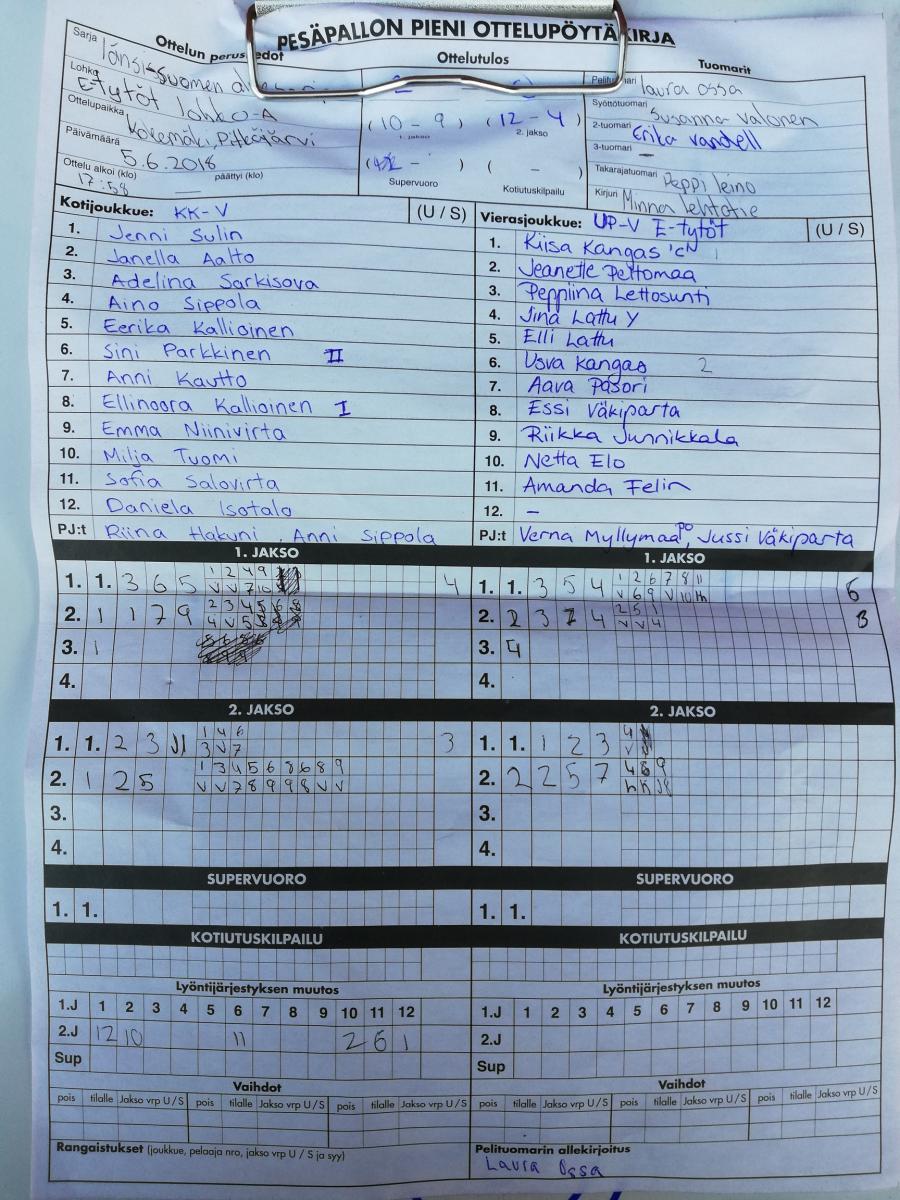 PESÄPALLON PIENI OTTELUPÖYTÄKIRJA
Ottelun perus edot
Ottelutulos
Tuomarit
Sarja länsi-suomen
Lohko E-tytöt lohko-A
Ottelupaikka Kokemäki, Pitkäjärvi
Päivämäärä 5.6.2018
Ottelu alkoi (klo) 17:58 päättyi (klo) —
(10 - 9) 1. jakso
(12 - 4) 2. jakso
Supervuoro
( - ) Kotiutuskilpailu
laura ossa
Syöttötuomari Susanna Valonen
2-tuomari Erika Vandell
3-tuomari —
Takarajatuomari Peppi leino
Kirjuri Minna lehtotie
Kotijoukkue: KK-V (U / S)
1. Jenni Sulin
2. Janella Aalto
3. Adelina Sarkisova
4. Aino Sippola
5. Eerika Kallioinen
6. Sini Parkkinen II
7. Anni Kautto
8. Ellinoora Kallioinen I
9. Emma Niinivirta
10. Milja Tuomi
11. Sofia Salovirta
12. Daniela Isotalo
PJ:t Riina Hakuni, Anni Sippola
Vierasjoukkue: UP-V E-tytöt (U / S)
1. Kiisa Kangas
2. Jeanette Peltomaa
3. Peppiina Lettosunti
4. Jina Lattu Y
5. Elli Lattu
6. Usva Kangas 2
7. Aava Pasori
8. Essi Väkiparta
9. Riikka Junnikkala
10. Netta Elo
11. Amanda Felin
12. –
PJ:t Verna Myllymaa PO, Jussi Väkiparta
1. JAKSO
1. 1. 3 6 5 1 2 4 9 4
V V 7 10
2. 1 1 7 9 2 3 4
4 V 5
3. 1
4.
1. JAKSO
1. 1. 3 5 4 1 2 6 7 8 11 6
V 6 9 V 10
2. 2 3 4 2 5 1 3
V V 4
3. 4
4.
2. JAKSO
1. 1. 2 3 1 4 6 3
3 V 7
2. 1 2 5 1 3 4 5 6 8 6 8 9
V V 7 8 9 9 8 V V
3.
4.
2. JAKSO
1. 1. 1 2 3 4
V
2. 2 2 5 7 4 9
3.
4.
SUPERVUORO
1. 1.
SUPERVUORO
1. 1.
KOTIUTUSKILPAILU
KOTIUTUSKILPAILU
Lyöntijärjestyksen muutos
1.J 1 2 3 4 5 6 7 8 9 10 11 12
2.J 12 10 11 2 6 1
Sup
Lyöntijärjestyksen muutos
1.J 1 2 3 4 5 6 7 8 9 10 11 12
2.J
Sup
Vaihdot
pois tilalle Jakso vrp U / S pois tilalle Jakso vrp U / S pois tilalle Jakso vrp U / S
Vaihdot
pois tilalle Jakso vrp U / S pois tilalle Jakso vrp U / S pois tilalle Jakso vrp U / S
Rangaistukset (joukkue, pelaaja nro, jakso vrp U / S ja syy)
Pelituomarin allekirjoitus
Laura Ossa